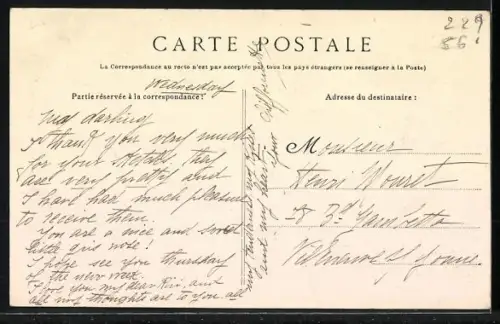 229
56
CARTE POSTALE
La Correspondance au recto n'est pas acceptée par tous les pays étrangers (se renseigner à la Poste)
Partie réservée à la correspondance:
Adresse du destinataire:
Wednesday
my darling
I thank you very much
for your they
are very pretty and
I have had much pleasure
to receive them.
You are a nice and sweet
little note!
I hope see you thursday
of the new week.
I love you my dear and
all my thoughts are to you all
my thousand my
and my dear your
Monsieur
Henri
8 Bd Gambetta
Villeneuve s/ Yonne